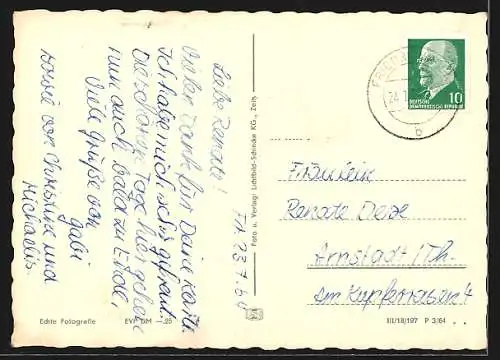 Liebe Renate!
Fr. 23.7.64
Vielen Dank für Deine Karte
Ich habe mich sehr gefreut.
Die schönen Tage hier gehen
nun auch bald zu Ende.
Viele Grüße von
Gabi
sowie von Christine und
Michaelis.
Echte Fotografie
EVP DM -.25
Foto u. Verlag: Lichtbild-Schincke KG., Zeitz
24.7
b
DEUTSCHE
DEMOKRATISCHE REPUBLIK
10
Fräulein
Renate
Arnstadt/Th.
Am Kupferrasen 4
III/18/197 P 3/64